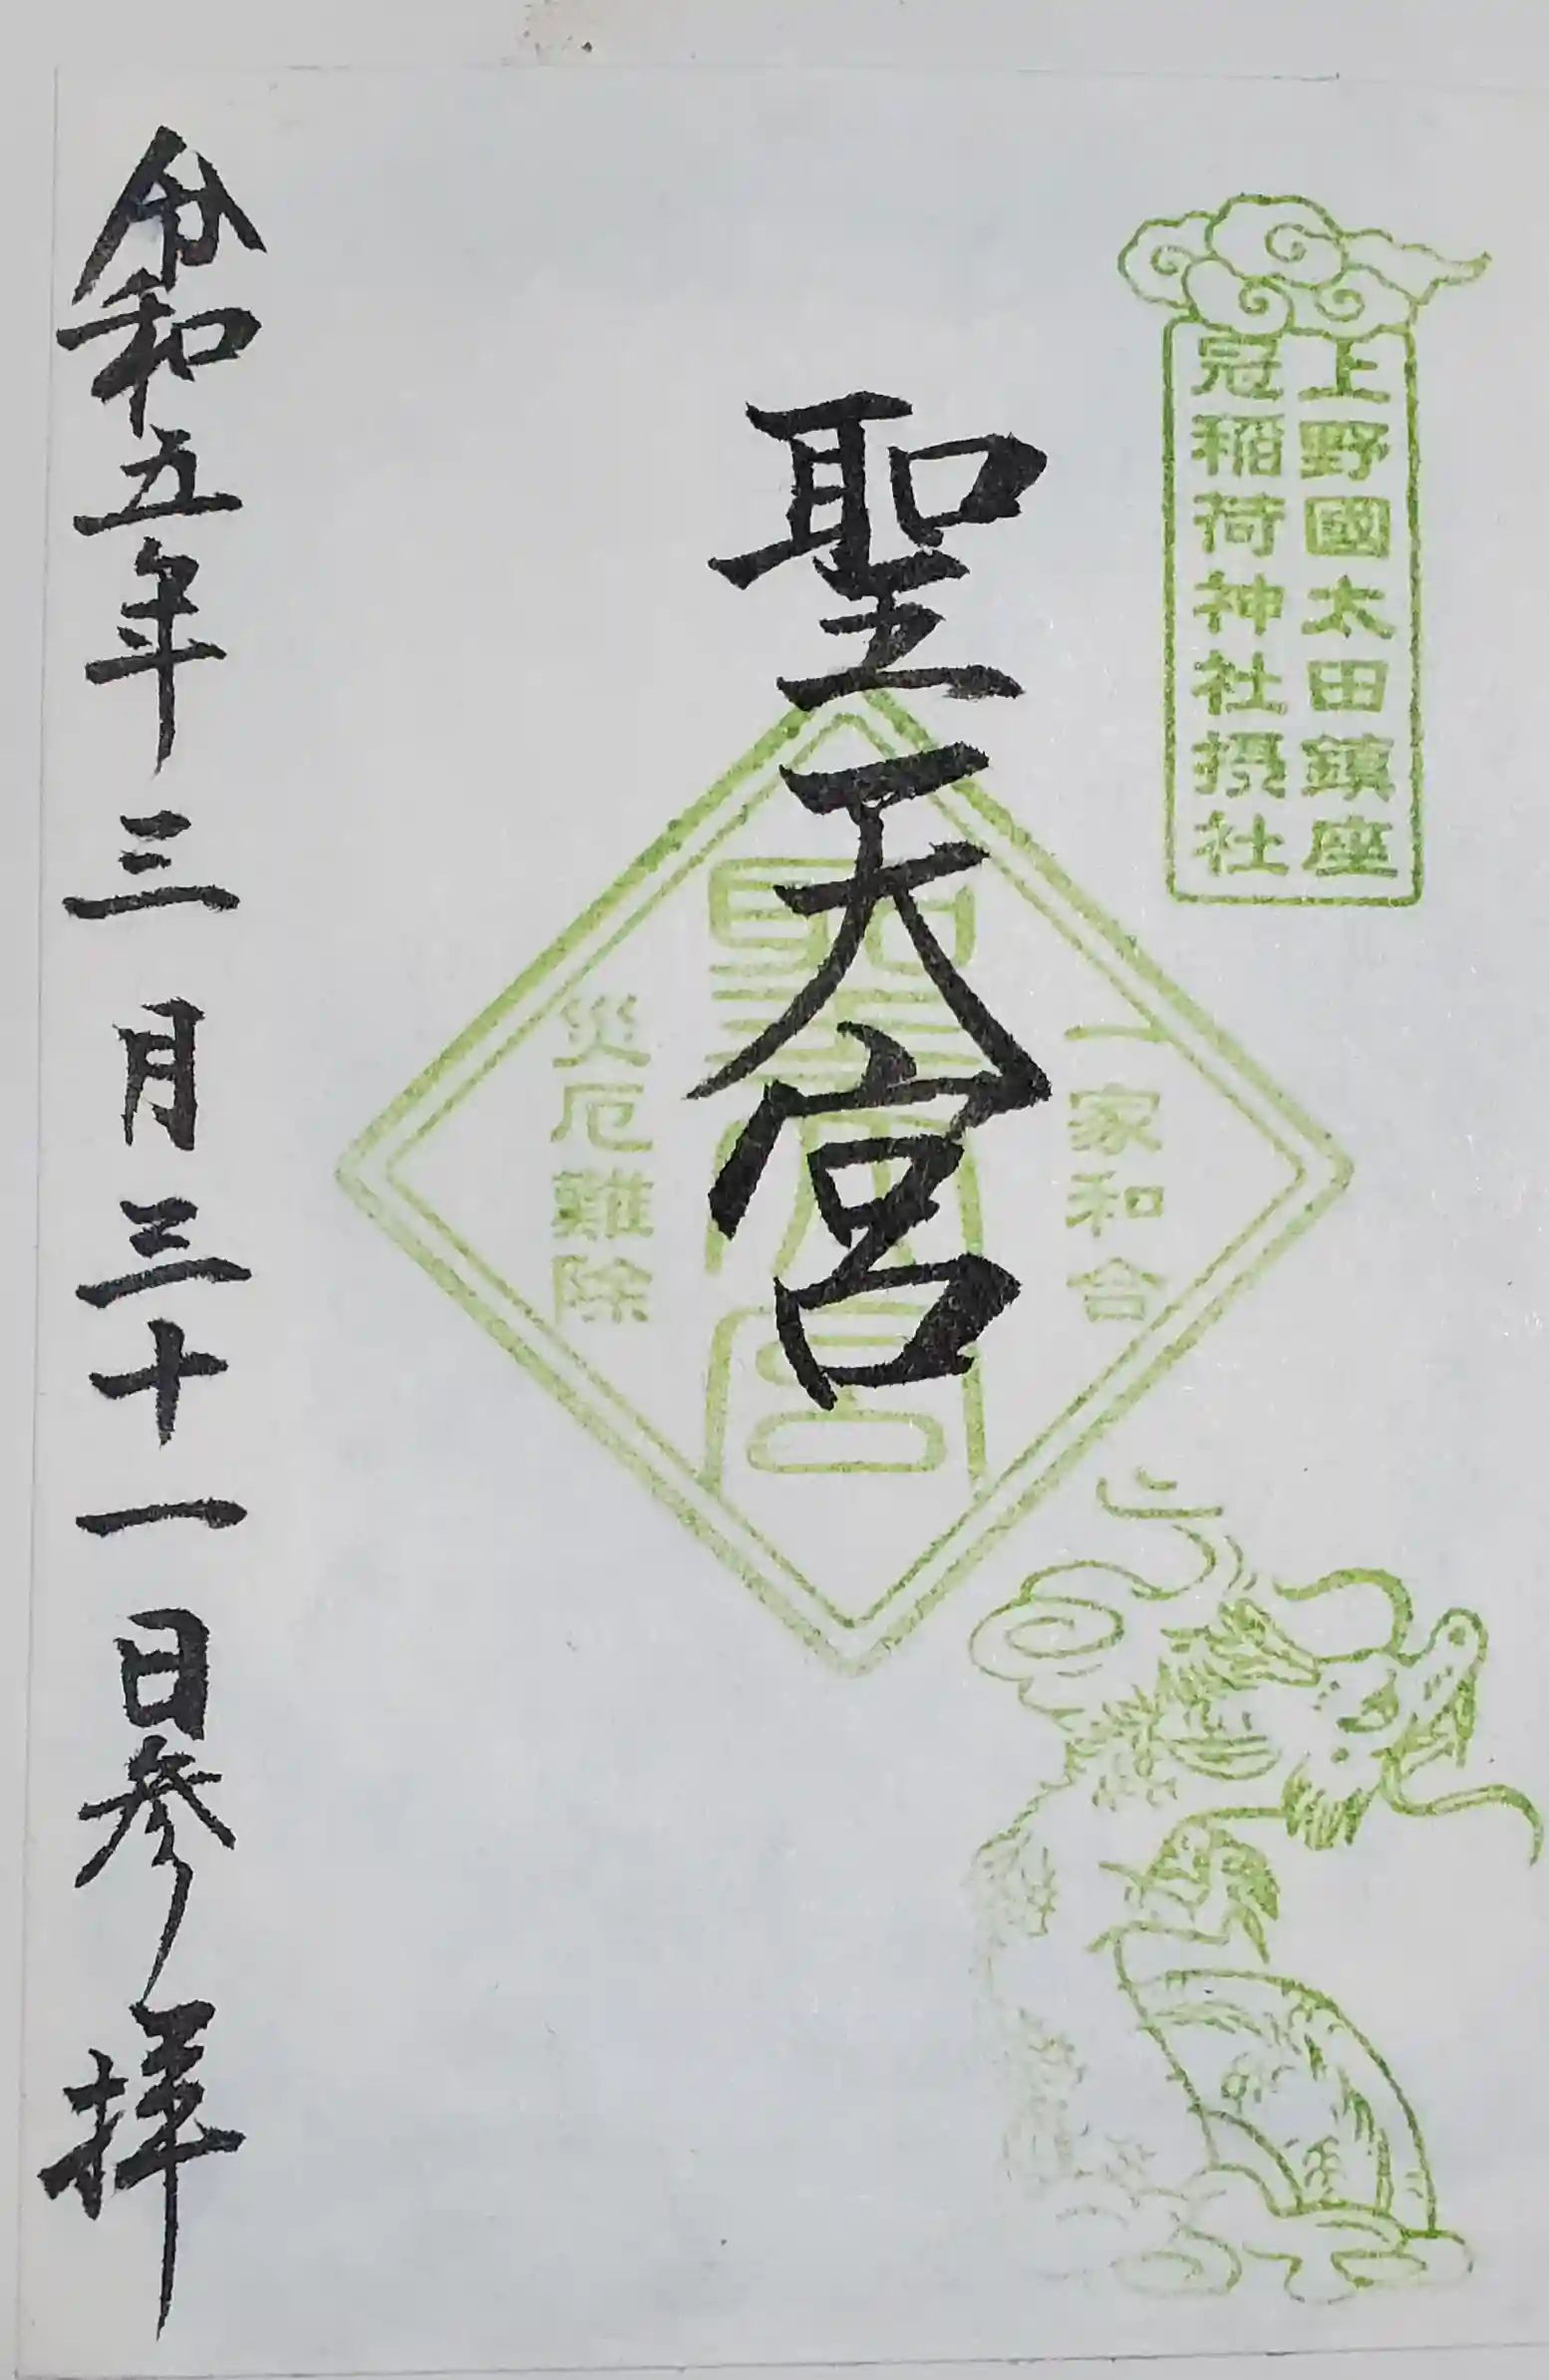 上野國太田鎮座
冠稲荷神社摂社
一家和合
聖天宮
聖天宮
災厄難除
令和五年三月三十一日参拝